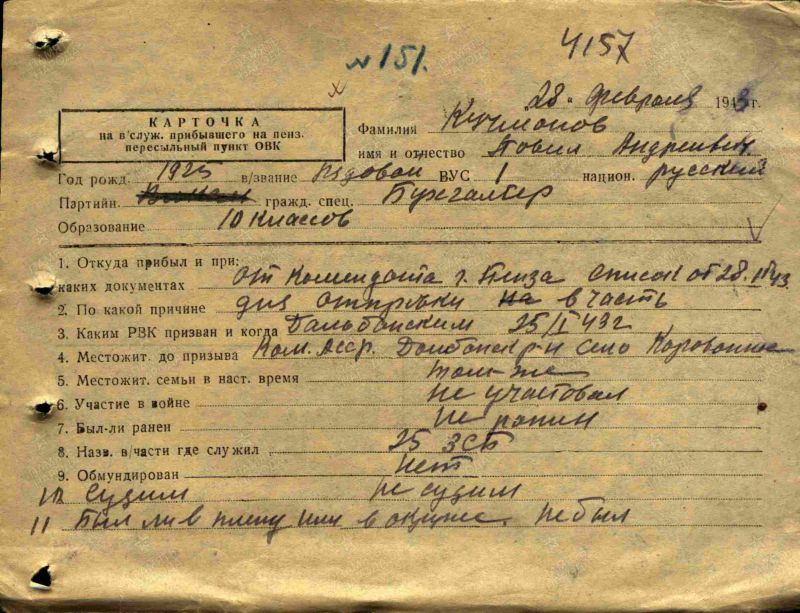 №151.
4157
28. февраля 1943 г.
КАРТОЧКА
на в/служ. прибывшего на пенз.
пересыльный пункт ОВК
Фамилия Кучмопов
имя и отчество Повил Андреевич
Год рожд. 1925 в/звание Рядовои ВУС 1 национ. русский
Партийн. гражд. спец. Бухгалтер
Образование 10 Классов
1. Откуда прибыл и при:
каких документах от Комендота г. Пенза Список от 28.II 43.
2. По какой причине для отправки на в часть
3. Каким РВК призван и когда Дальбанским 25/I 43г
4. Местожит. до призыва Кал. Асср. Долбанск р-н село Корованное
5. Местожит. семьи в наст. время там-же
6. Участие в войне не участовал
7. Был-ли ранен Не ранин
8. Назв. в/части где служил 25 ЗСБ
9. Обмундирован Нет
10 Судим не судим
11 Был ли в плену или в окруже. не был